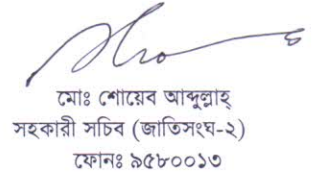 মোঃ শোয়েব আব্দুল্লাহ্
সহকারী সচিব (জাতিসংঘ-২)
ফোনঃ ৯৫৮০০১৩